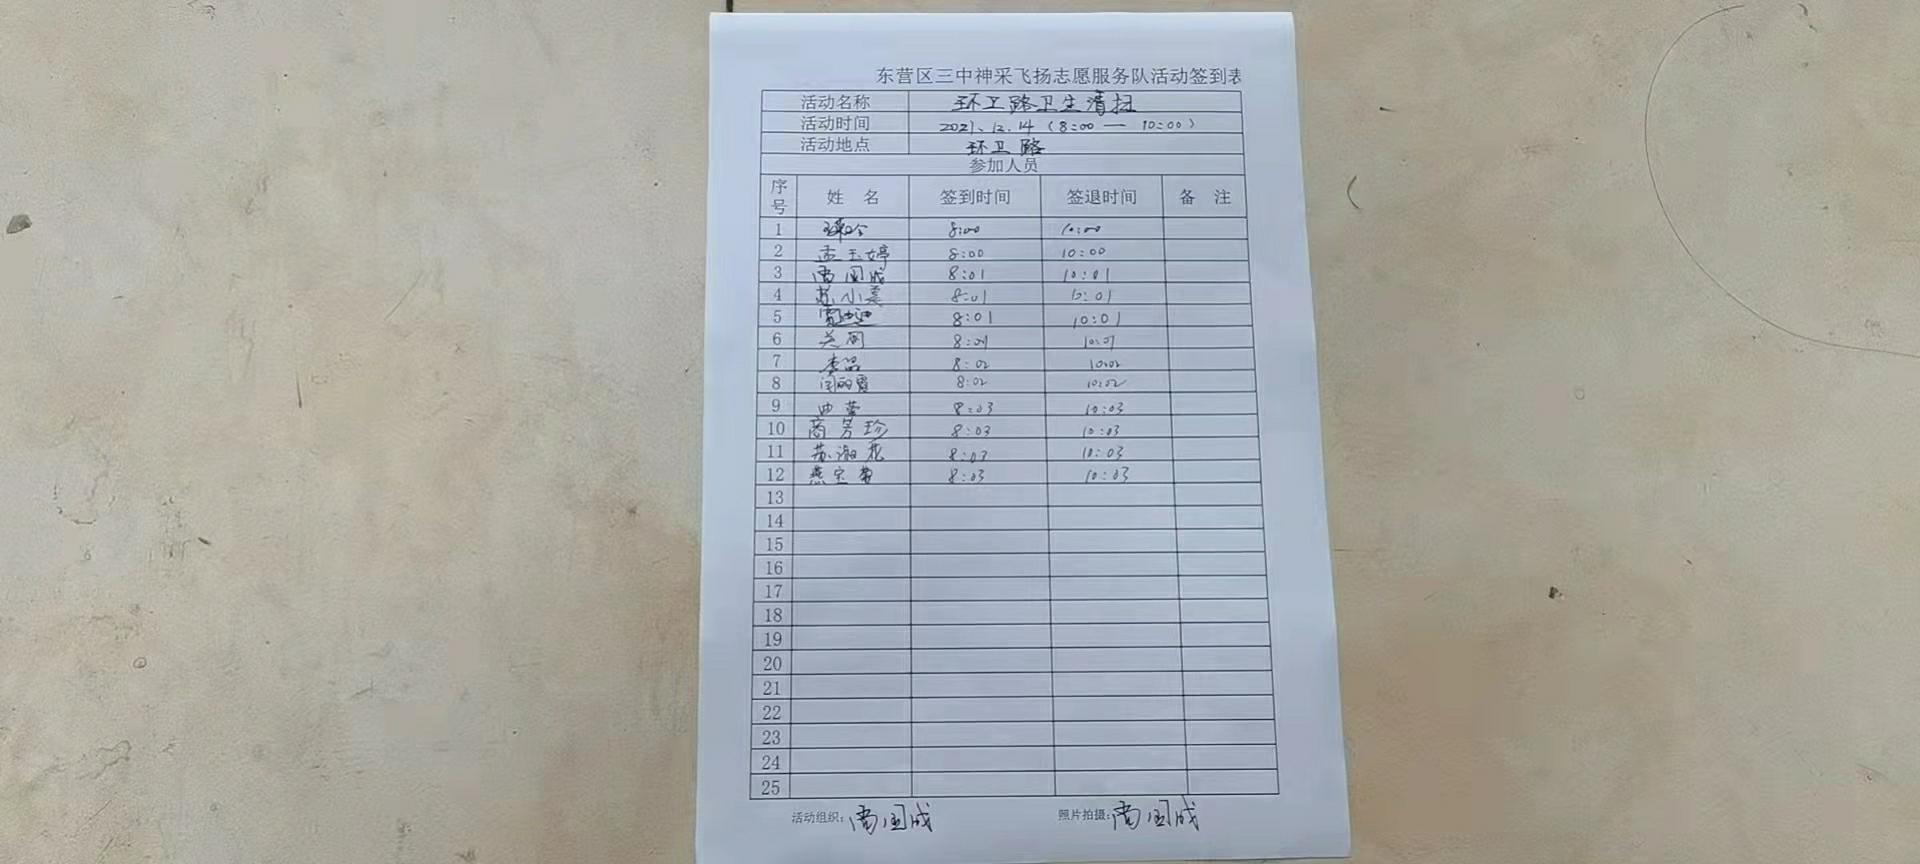 东营区三中神采飞扬志愿服务队活动签到表
活动名称 环卫路卫生清扫
活动时间 2021.12.14(8:00 — 10:00)
活动地点 环卫路
参加人员
序号 姓 名 签到时间 签退时间 备 注
1 8:00 10:00
2 孟玉婷 8:00 10:00
3 商国成 8:01 10:01
4 苏小燕 8:01 10:01
5 8:01 10:01
6 关囡 8:01 10:01
7 李品 8:02 10:02
8 闫丽霞 8:02 10:02
9 曲蕾 8:03 10:03
10 商芳珍 8:03 10:03
11 苏淑花 8:03 10:03
12 燕宝菊 8:03 10:03
13
14
15
16
17
18
19
20
21
22
23
24
25
活动组织:商国成 照片拍摄:商国成